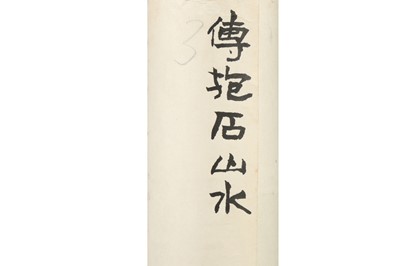 傅抱石山水
3